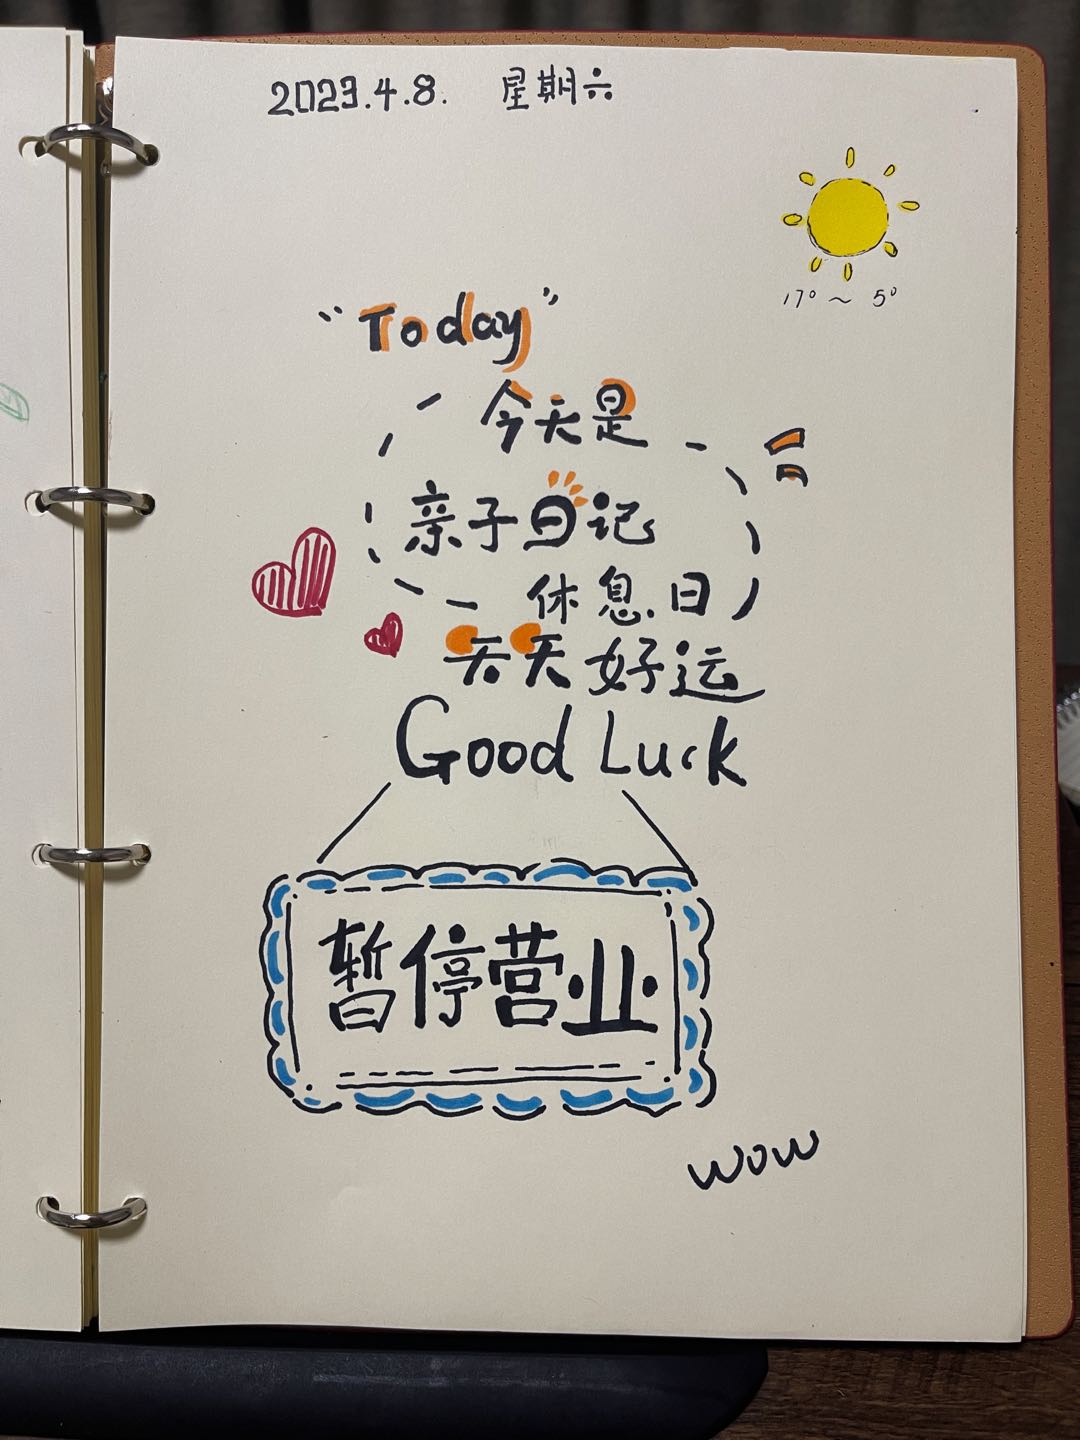 2023.4.8. 星期六
17° ~ 5°
"Today"
今天是
亲子日记
休息日
天天好运
Good Luck
暂停营业
wow